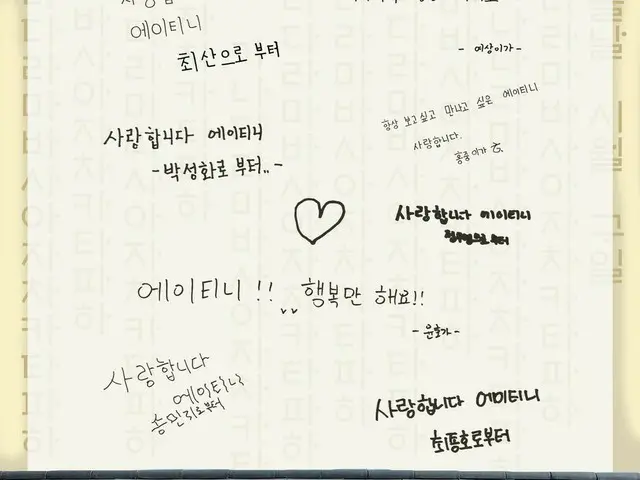 에이티니
최산으로 부터
- 여상이가 -
사랑합니다 에이티니
-박성화로 부터.. -
항상 보고싶고 만나고 싶은 에이티니
사랑합니다.
홍중이가
사랑합니다 에이티니
정우영으로 부터
에이티니 !! 행복만 해요!!
- 윤호가 -
사랑합니다
에이티니
송민기로부터
사랑합니다 에이티니
최종호로부터